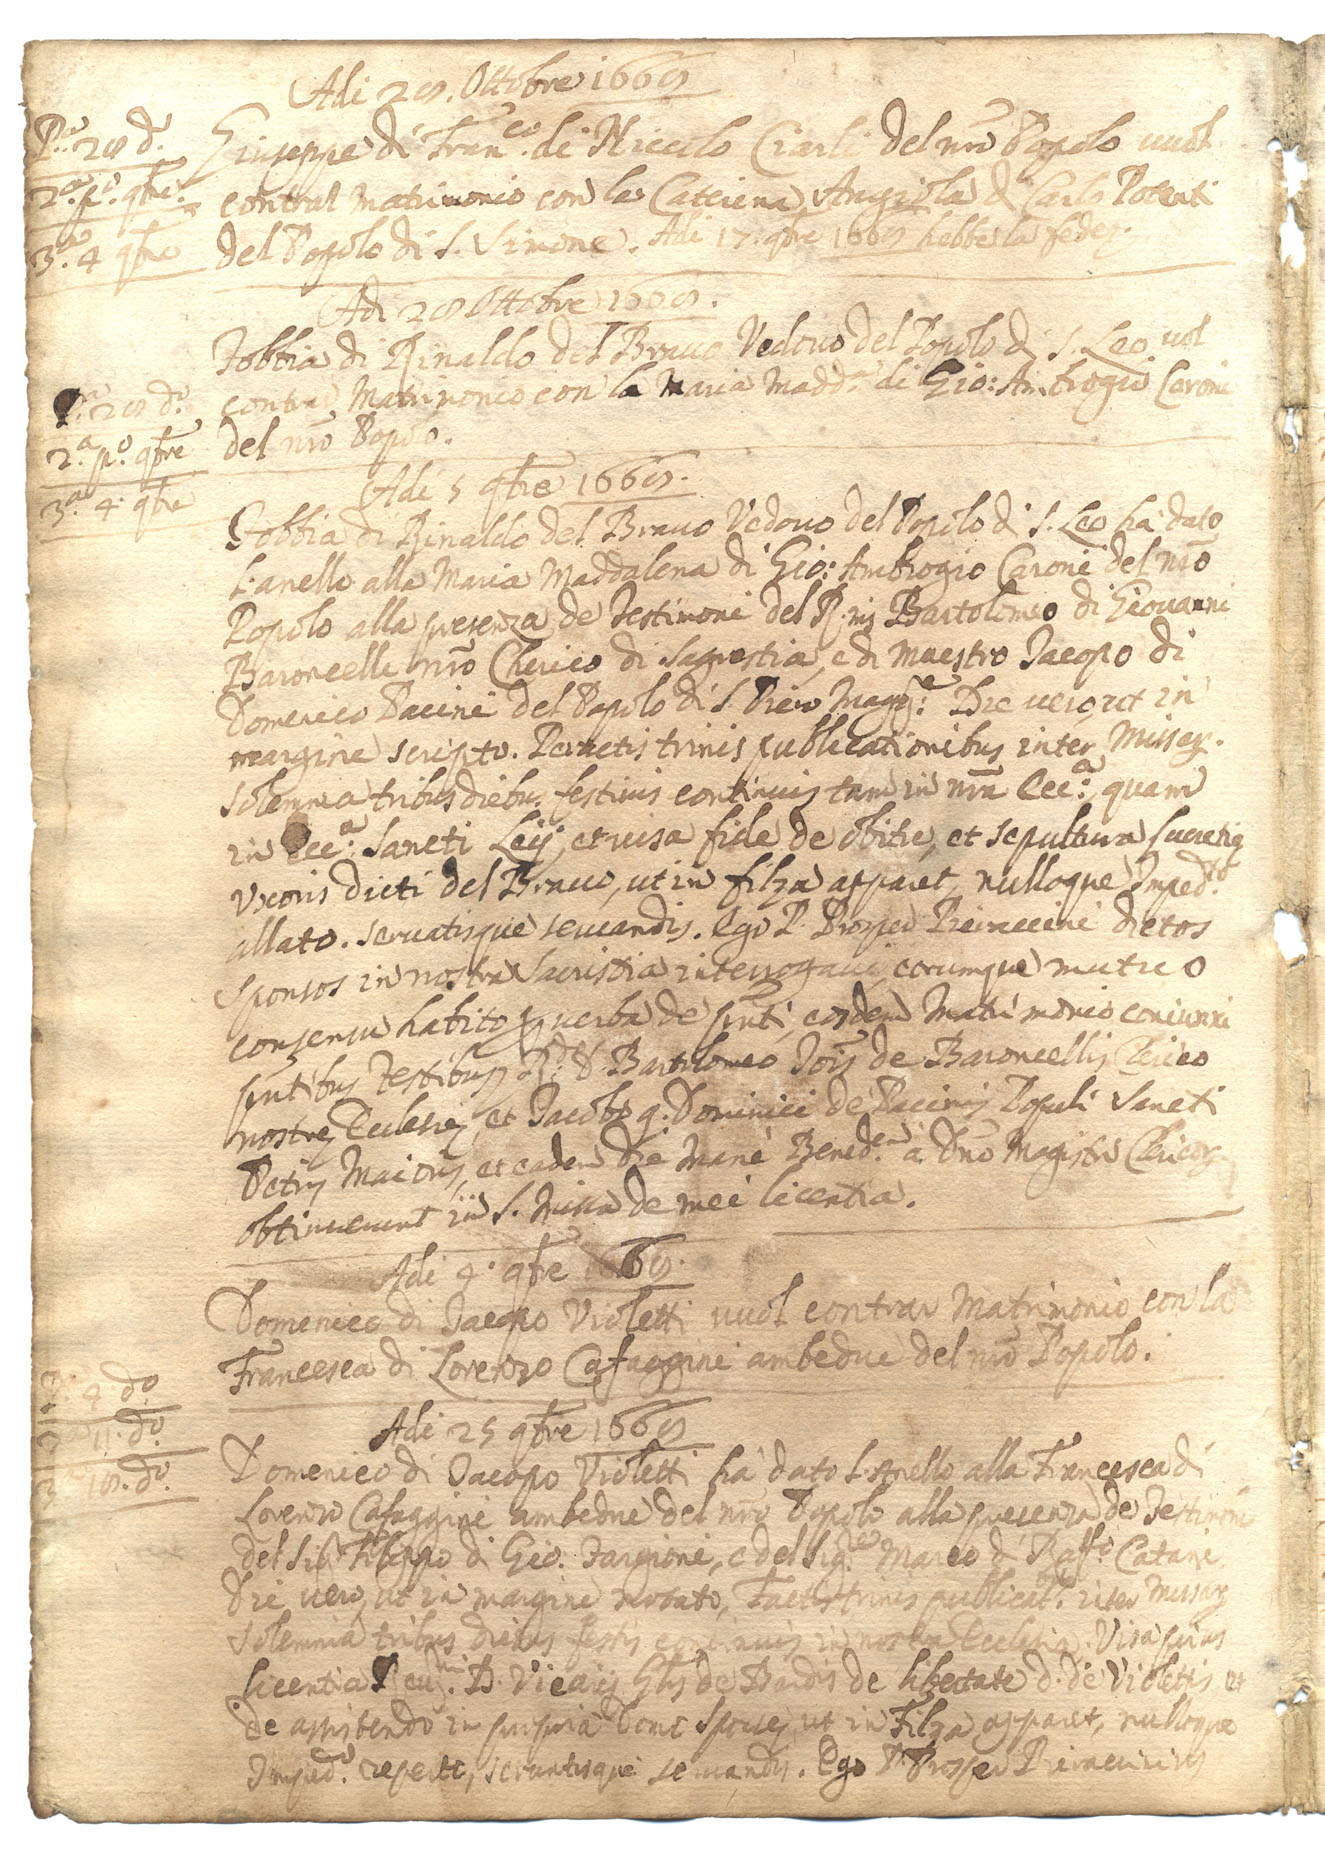 Adi 28. Ottobre 1668
P.a 28 d.o
Giuseppe di Fran.co di Niccolo Ciarli del nr̃o Popolo vuol
2.a p.o 9bre
contrar Matrimonio con la Caterina Angiola d Carlo Potenti
3.a 4 9bre
del Popolo di S. Simone. Adi 17. 9bre 1668 hebbe la fede.
Adi 28 Ottobre 1668.
Tobbia di Rinaldo del Bravo Vedovo del Popolo d S. Leo vol
P.a 28 d.o
contrar Matrimonio con la Maria Madd.a di Gio: Ambrogio Caroni
2.a p.o 9bre
del nr̃o Popolo.
3.a 4 9bre
Adi 5 9bre 1668.
Tobbia di Rinaldo del Bravo Vedovo del Popolo di S. Leo ha dato
l'anello alla Maria Maddalena di Gio: Ambrogio Caroni del nr̃o
Popolo alla presenza de Testimoni del R. Bartolomeo di Giovanni
Baroncelli nr̃o Cherico di Sagrestia, e di Maestro Jacopo di
Domenico Pacini del Popolo di S. Piero Magg.e Die vero, ut in
margine scripto. Peractis trinis publicationibus inter Missar.
solemnia tribus diebus festivis continuis tam in nr̃a Ecc.a, quam
in Ecc.a Sancti Leij, et visa fide de obitu, et sepultura Lucretię
Uxoris dicti del Bravo, ut in filza apparet, nulloque Imped.to
allato. servatisque servandis. Ego P. Prosper Pieraccini dictos
sponsos in nostra Sacristia interrogavi, eorumque mutuo
consensu habito p verba de pñti, eosdem Matrimonio coniunxi
pñtibus Testibus R.do D. Bartolomeo Jois de Baroncellis Clerico
nostrę Ecclesię, et Jacobo q. Dominici de Pacinis Populi Sancti
Petri Maioris, et eadem die mane Bened.em a Dño Magistro Clericor.
obtinuerunt in S. Missa de mei licentia.
Adi 4. 9bre 1668.
Domenico di Jacopo Violetti vuol contrar Matrimonio con la
Francesca di Lorenzo Cafaggini ambedue del nr̃o Popolo.
4 d.o
Adi 25 9bre 1668
11. d.o
Domenico di Jacopo Violetti ha dato l'Anello alla Francesca di
18. d.o
Lorenzo Cafaggini ambedue del nr̃o Popolo alla presenza de Testimoni
del Sig.r Filippo di Gio. Targioni, e del Sig.re Marco d Raff.o Catani
Die vero, ut in margine notato, Factis trinis publicat. inter Missar
solemnia tribus diebus festis continuis in nostra Ecclesia. Visa prius
licentia D. Vicarij Glis de Bardis de libertate d. de Violettis et
de assistendo in propria domo Sponsę, ut in Filza apparet, nulloque
Imped.o reperto, servatisque servandis. Ego P. Prosper Pieraccinius